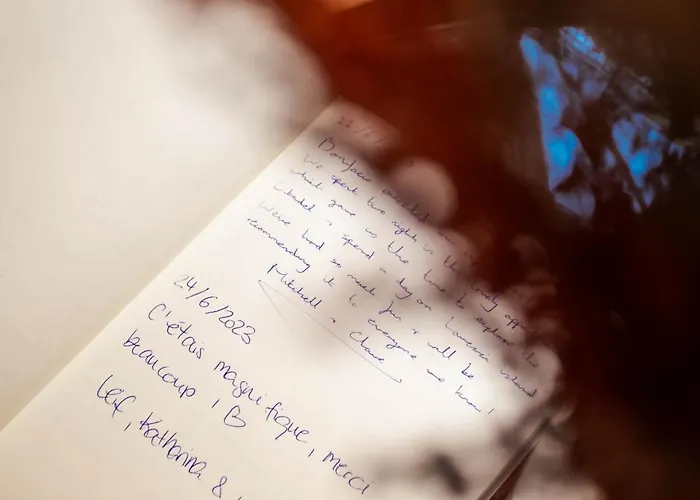 22/6/
We spent two nights in the lovely
that gave us the time to explore the
Citadel & spend a day on island
We've had so much fun & will be
recommending it to everyone we know!
Mitchell &
24/6/2023
C'étais magnifique, merci
beaucoup, B
Leif, Katharina &